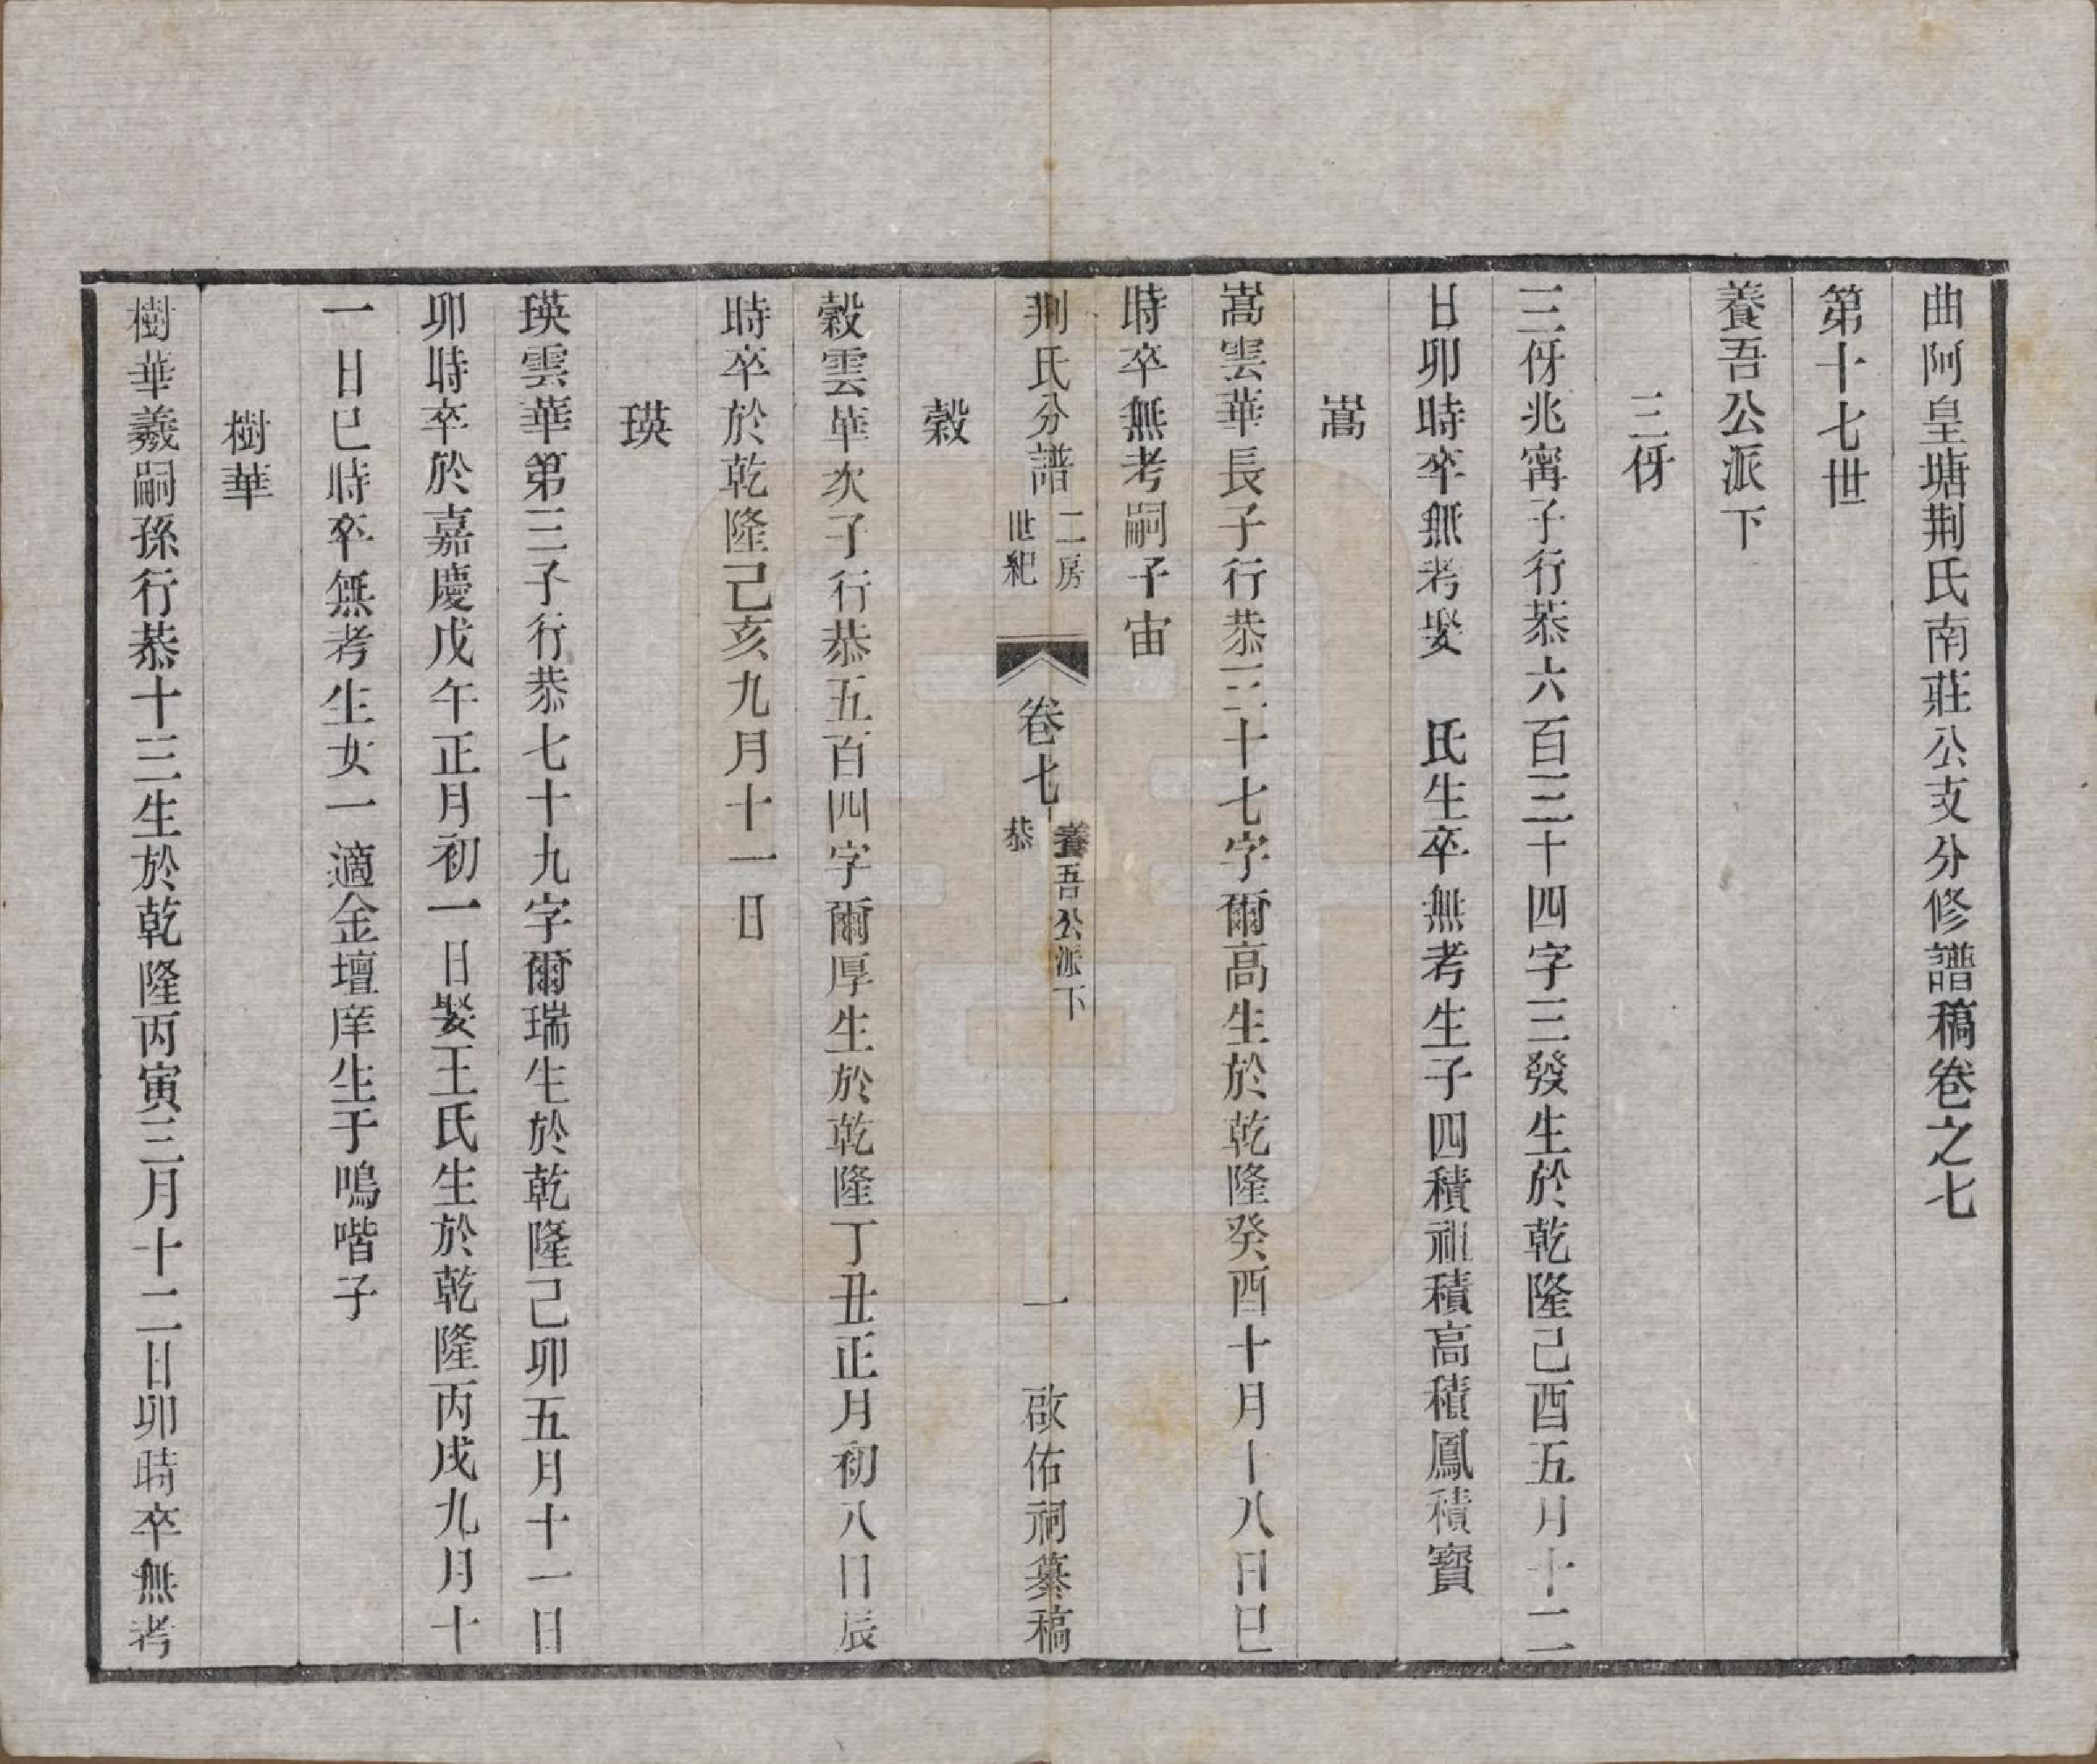 曲阿皇塘荆氏南莊公支分修譜稿卷之七
第十七世
養吾公派下
三伢
三伢兆甯子行恭六百三十四字三發生於乾隆己酉五月十二
日卯時卒無考娶　氏生卒無考生子四積祖積高積鳳積寶
嵩
嵩雲華長子行恭三十七字爾高生於乾隆癸酉十月十八日巳
時卒無考嗣子宙
荆氏分譜
二房
世紀
卷七
養吾公派下
恭
一
啟佑祠纂稿
穀
穀雲華次子行恭五百四字爾厚生於乾隆丁丑正月初八日辰
時卒於乾隆己亥九月十一日
瑛
瑛雲華第三子行恭七十九字爾瑞生於乾隆己卯五月十一日
卯時卒於嘉慶戊午正月初一日娶王氏生於乾隆丙戌九月十
一日巳時卒無考生女一適金壇庠生于鳴喈子
樹華
樹華羲嗣孫行恭十三生於乾隆丙寅三月十二日卯時卒無考